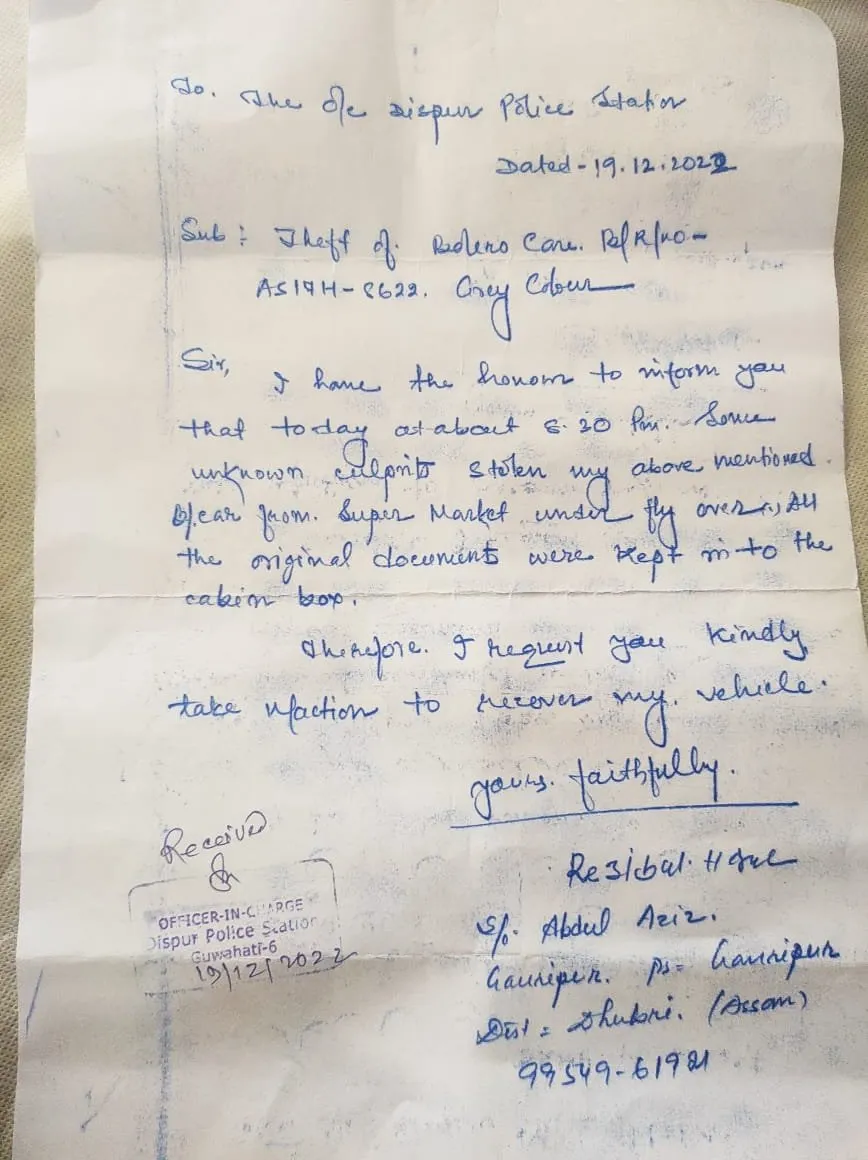 To. The O/c Dispur Police Station
Dated-19.12.2022
Sub: Theft of. Bolero Care. B/R/NO-
AS17H-8622. Grey Colour
Sir,
I have the honour to inform you
that today at about 8.20 Pm. Some
unknown culprits stolen my above mentioned
car from. Super Market under fly over., All
the original documents were kept in to the
cabin box.
Therefore. I request you kindly
take action to recover my. vehicle.
yours. faithfully.
Received
OFFICER-IN-CHARGE
Dispur Police Station
Guwahati-6
19/12/2022
S/o. Abdul Aziz.
Gauripur. Ps= Gauripur
Dist = Dhubri. (Assam)